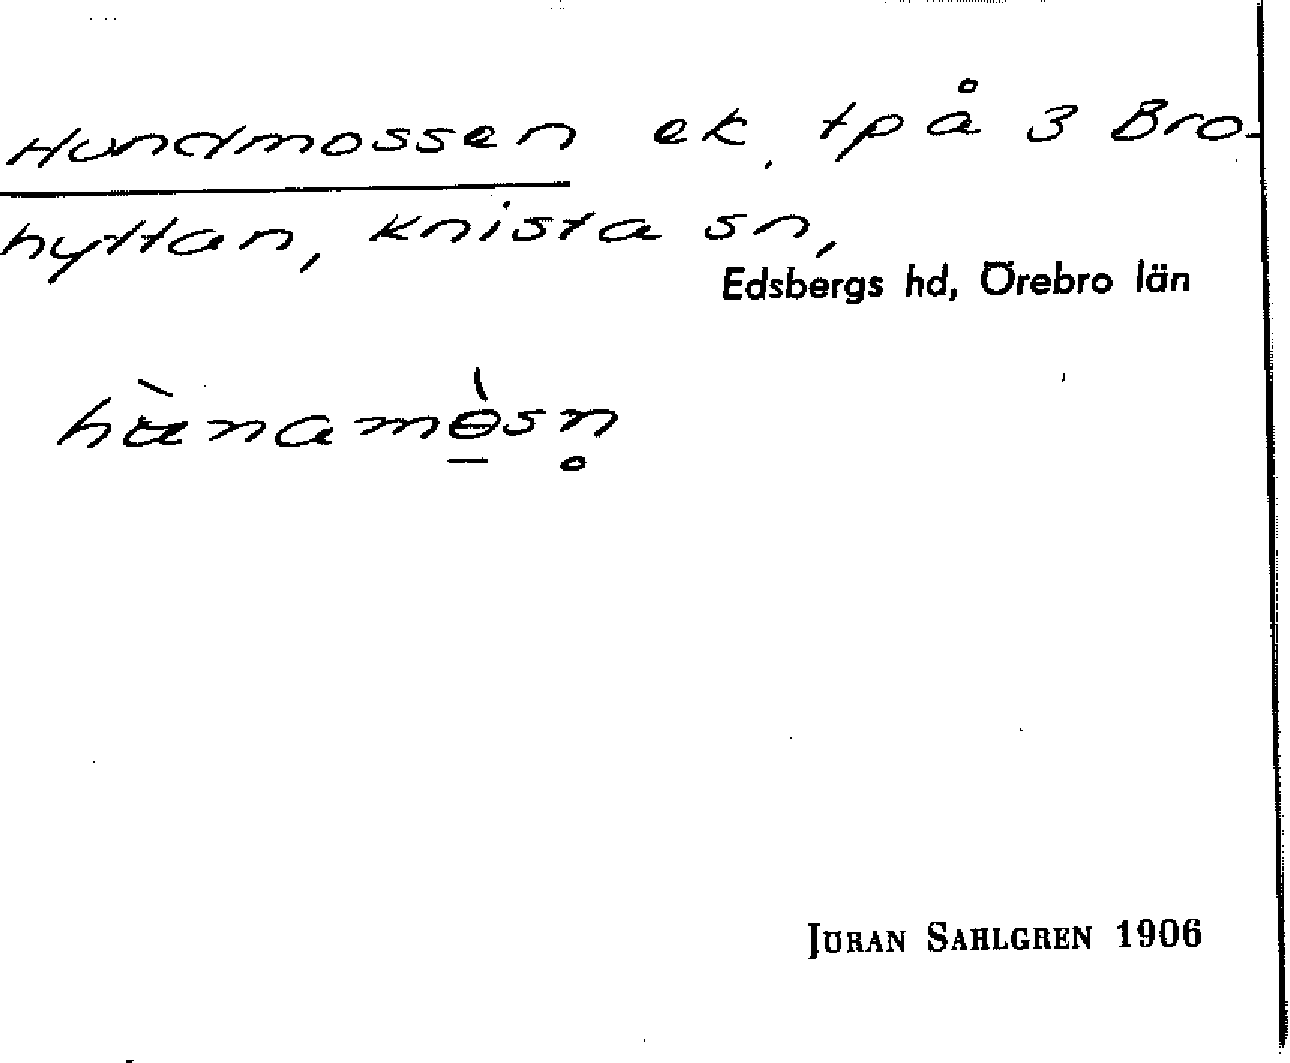 Hundmossen ek. tp å 3 Bro-
hyttan, Knista sn,
Edsbergs hd, Örebro län
JÖRAN SAHLGREN 1906